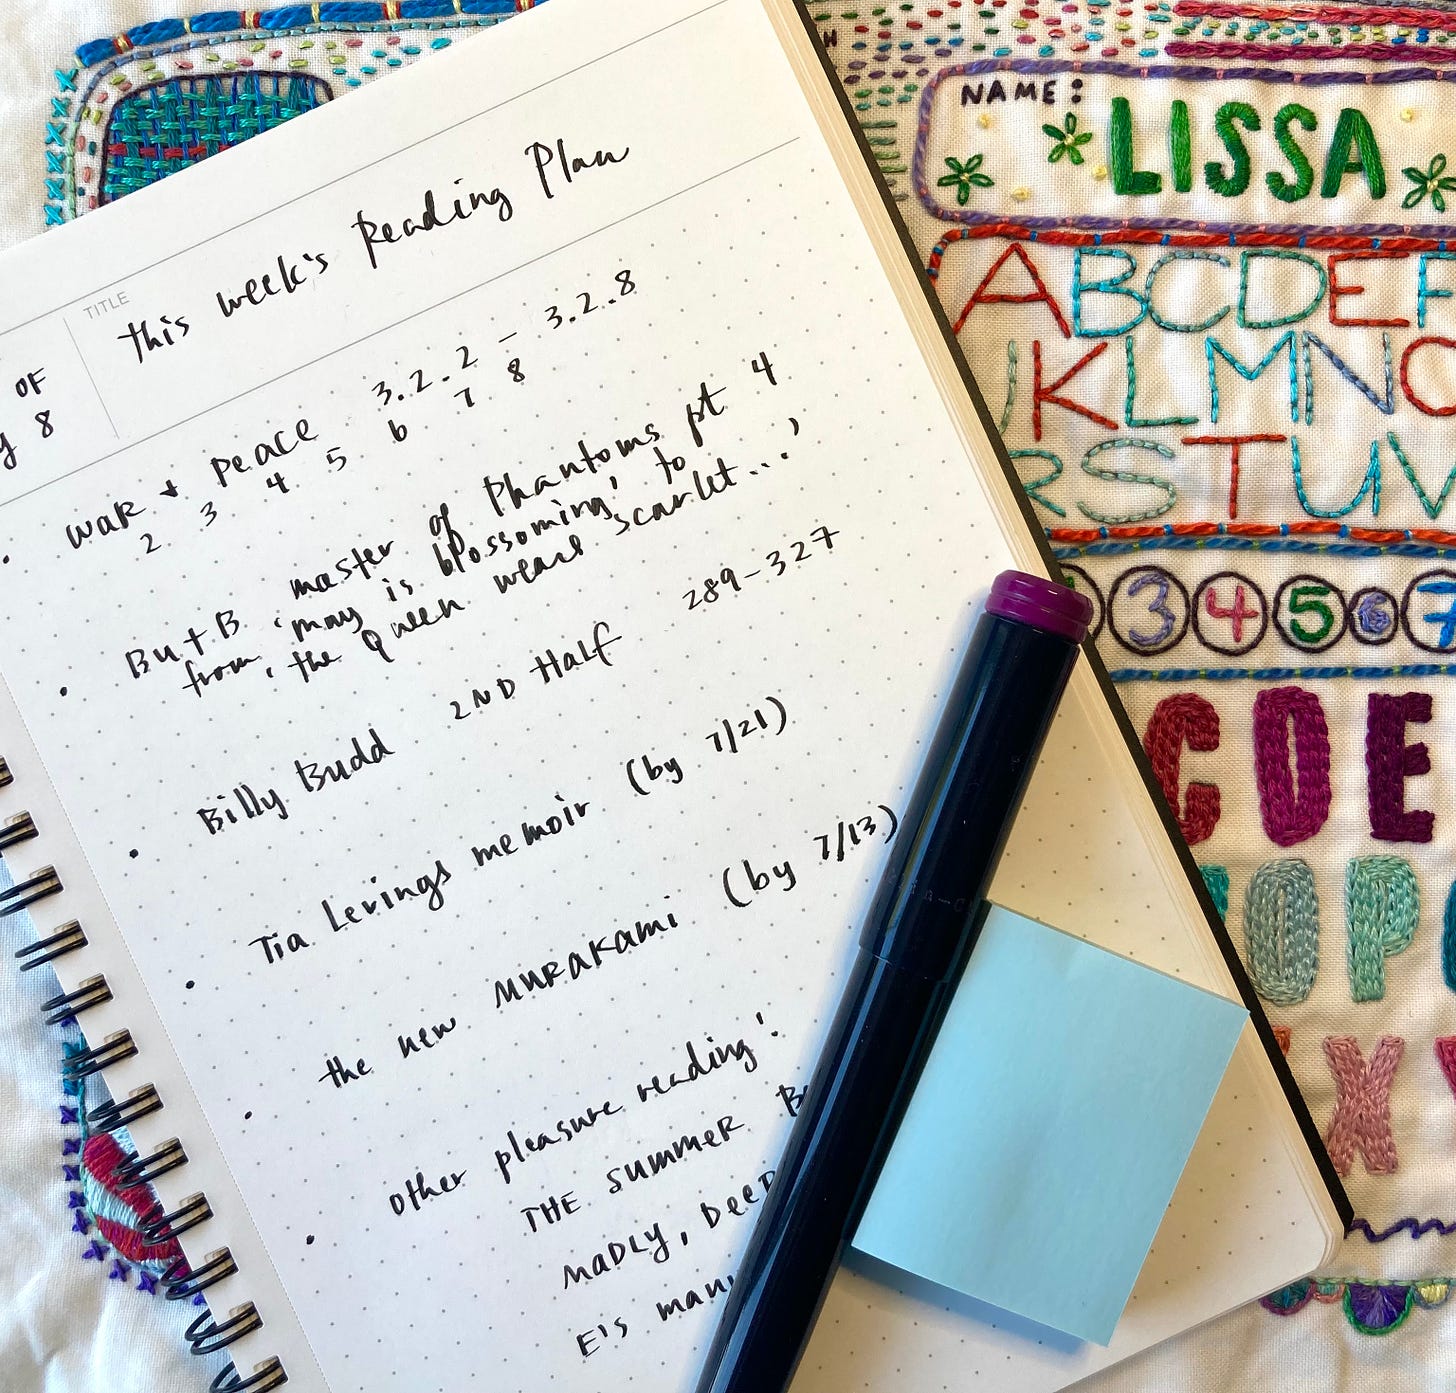 TITLE
This week's Reading Plan
OF
y 8
War + Peace 3.2.2 - 3.2.8
2 3 4 5 6 7 8
Bu+B master of Phantoms pt 4
from 'may is blossoming,' to
'the Queen wears scarlet...'
Billy Budd 2ND Half 289-327
Tia Levings memoir (by 7/21)
the new MURAKAMI (by 7/13)
other pleasure reading:
THE SUMMER B
MADLY, DEEP
E's man
NAME:
LISSA
ABCDEF
JKLMNO
RSTUV
3 4 5 6 7
CDE
OP
X